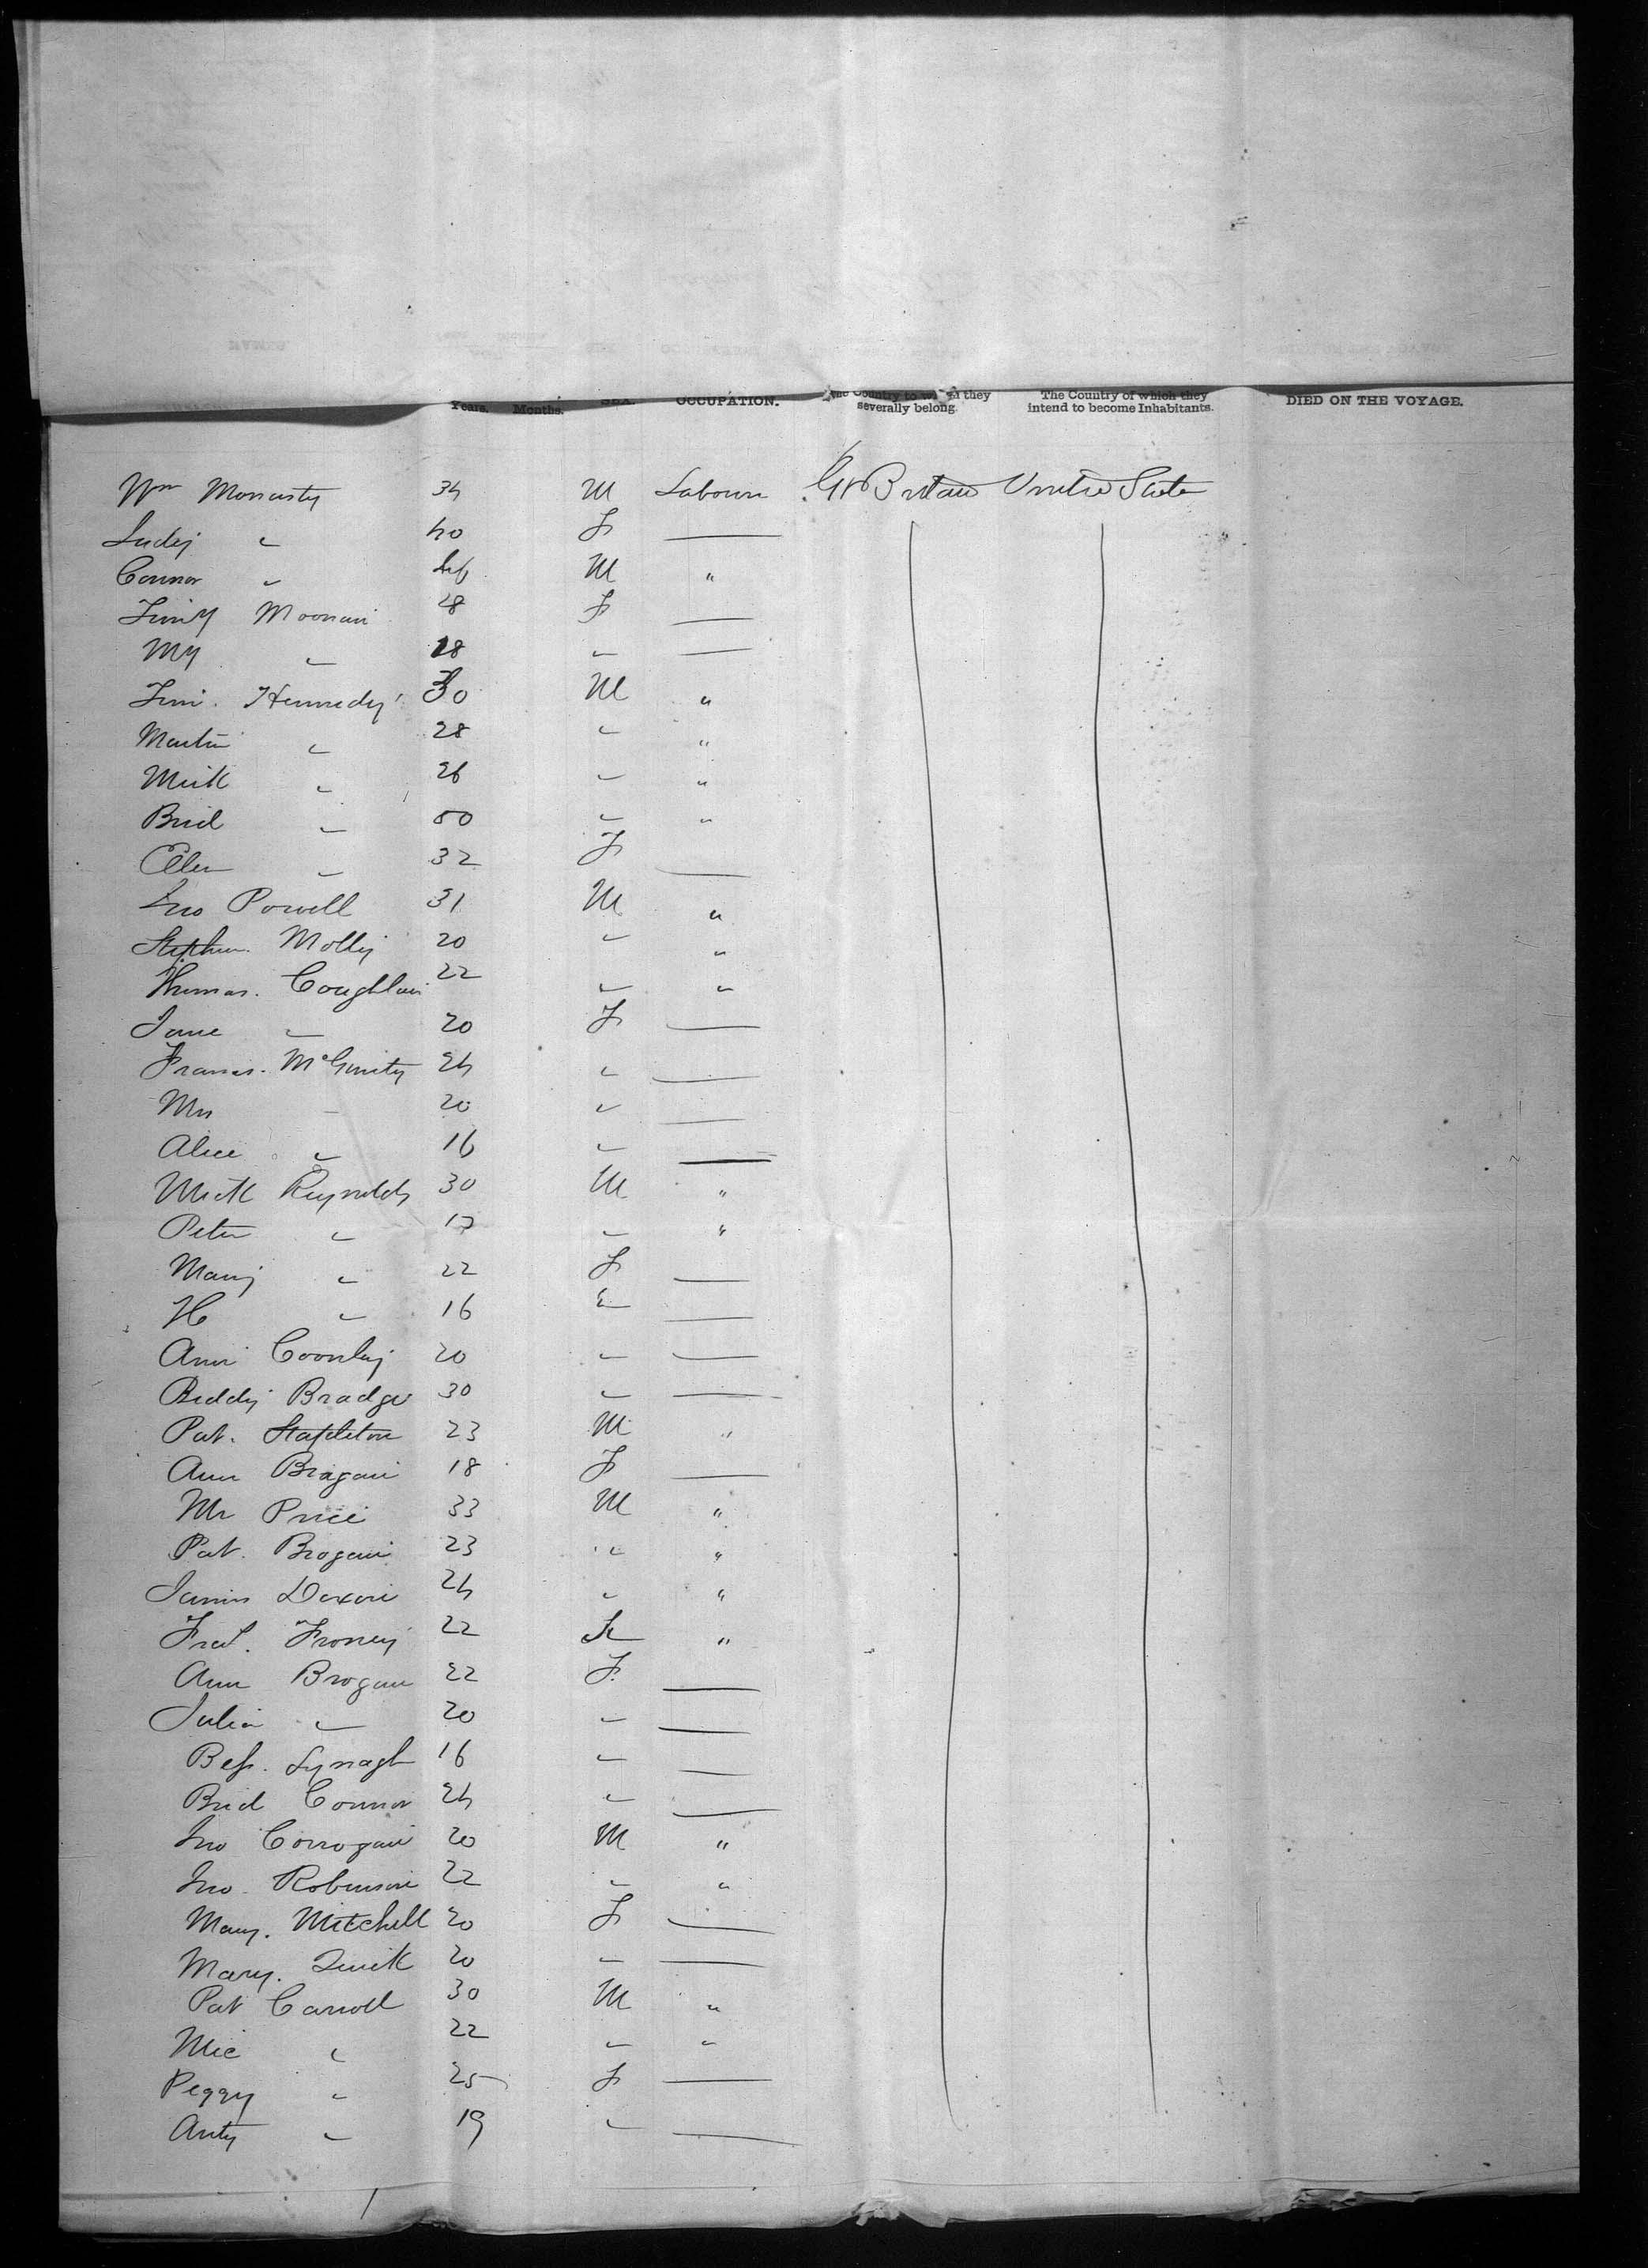 Years. Months. SEX. OCCUPATION. The Country to which they severally belong. The Country of which they intend to become Inhabitants. DIED ON THE VOYAGE.
Wm 34 M Labourer Gt Britain United State
Judy " 40 F —
Connor " M "
28 F —
My " 18 " —
Jim. Kennedy 30 M "
Martin " 28 " "
Mick " 26 " "
Brid " 50 " "
Ellen " 32 F —
Jno Powell 31 M "
Stephen Molly 20 " "
Thomas. Coughlan 22 " "
Jane " 20 F —
Frances. McGinity 24 " —
Mrs 20 " —
Alice " 16 " —
Mick Reynolds 30 M "
Peter " 17 " "
Mary " 22 F —
" 16 " —
Ann 20 " —
Biddy 30 " —
Pat. Stapleton 23 M "
Ann Brogan 18 F —
Mr Price 33 M "
Pat. Brogan 23 " "
James Dixon 24 " "
22 "
Ann Brogan 22 F —
Julia " 20 " —
Bess. Lynagh 16 " —
Brid Connor 24 " —
Jno Corrogan 20 M "
Jno. Robinson 22 " "
Mary. Mitchell 20 F —
Mary. Quick 20 " —
Pat Carroll 30 M "
Mic " 22 " "
Peggy " 25 F —
Anty " 19 " —